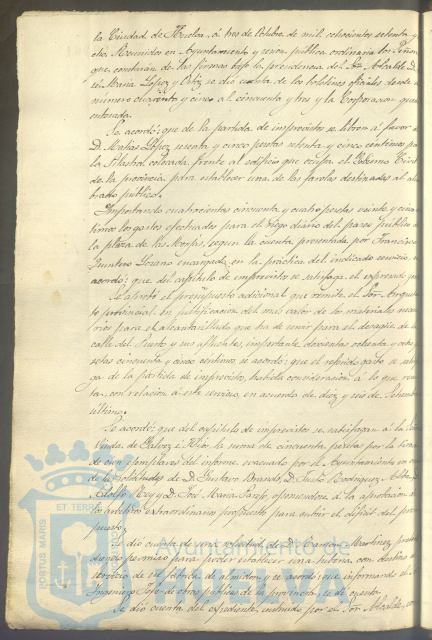 la Ciudad de Huelva, á tres de Octubre de mil ochocientos setenta y
ocho. Reunidos en Ayuntamiento y sesion pública ordinaria los Señores
que constarán de las firmas bajo la presidencia del Sor. Alcalde D.
José Maria Lopez y Ortiz, se dió cuenta de los boletines oficiales desde el
número cuarenta y cinco al cincuenta y tres y la Corporacion quedó
enterada.
Se acordó: que de la partida de imprevistos se libren á favor de
D. Matias Lopez sesenta y cinco pesetas setenta y cinco centimos por
la colocada frente al edificio que ocupa el Gobierno Civil
de la provincia para establecer una de las farolas destinadas al alum-
brado público.
Importando cuatrocientas cincuenta y cuatro pesetas veinte y cinco
timos los gastos efectuados para el riego diario del paseo público de
la plaza de las Monjas, segun la cuenta presentada por Francisco
Quintero Lozano encargado en la práctica del indicado servicio, se
acordó: que del capitulo de imprevistos se satisfaga el expresado gasto
Se aprobó el presupuesto adicional que remite el Sor. Arquitec-
to provincial en justificacion del mas valor de los materiales necesa-
rios para el alcantarillado que ha de servir para el desague de la
calle del Puerto y sus afluentes, importante doscientas ochenta y ocho
setas cincuenta y cinco centimos, se acordó: que el referido gasto se satisfa-
ga de la partida de imprevistos, habida consideración á lo que resul-
ta, con relación á este servicio, en acuerdo de diez y seis de Setiembre
último.
Se acordó: que del capitulo de imprevistos se satisfagan á la
Viuda de Galvez é Hijo, la suma de cincuenta pesetas por la tirada
de cien ejemplares del informe evacuado por el Ayuntamiento en
de las solicitudes de D. Gustavo Brandt, D. Justo Rodriguez Alba, D.
Adolfo Rey y D. José Maria Parejo, oponiendose á la aprobacion de
los arbitrios extraordinarios propuestos para cubrir el déficit del presu-
puesto.
Se dió cuenta de una solicitud de D. Martinez pi-
diendo permiso para poder establecer una tuberia con destino al
servicio de su fabrica de almidon, y se acordó: que informando el Sor.
Ingeniero Jefe de obras públicas de la provincia, se dé cuenta.
Se dió cuenta del espediente instruido por el Sor. Alcalde, con
PORTUS MARIS
ET TERRAE
Ayuntamiento de